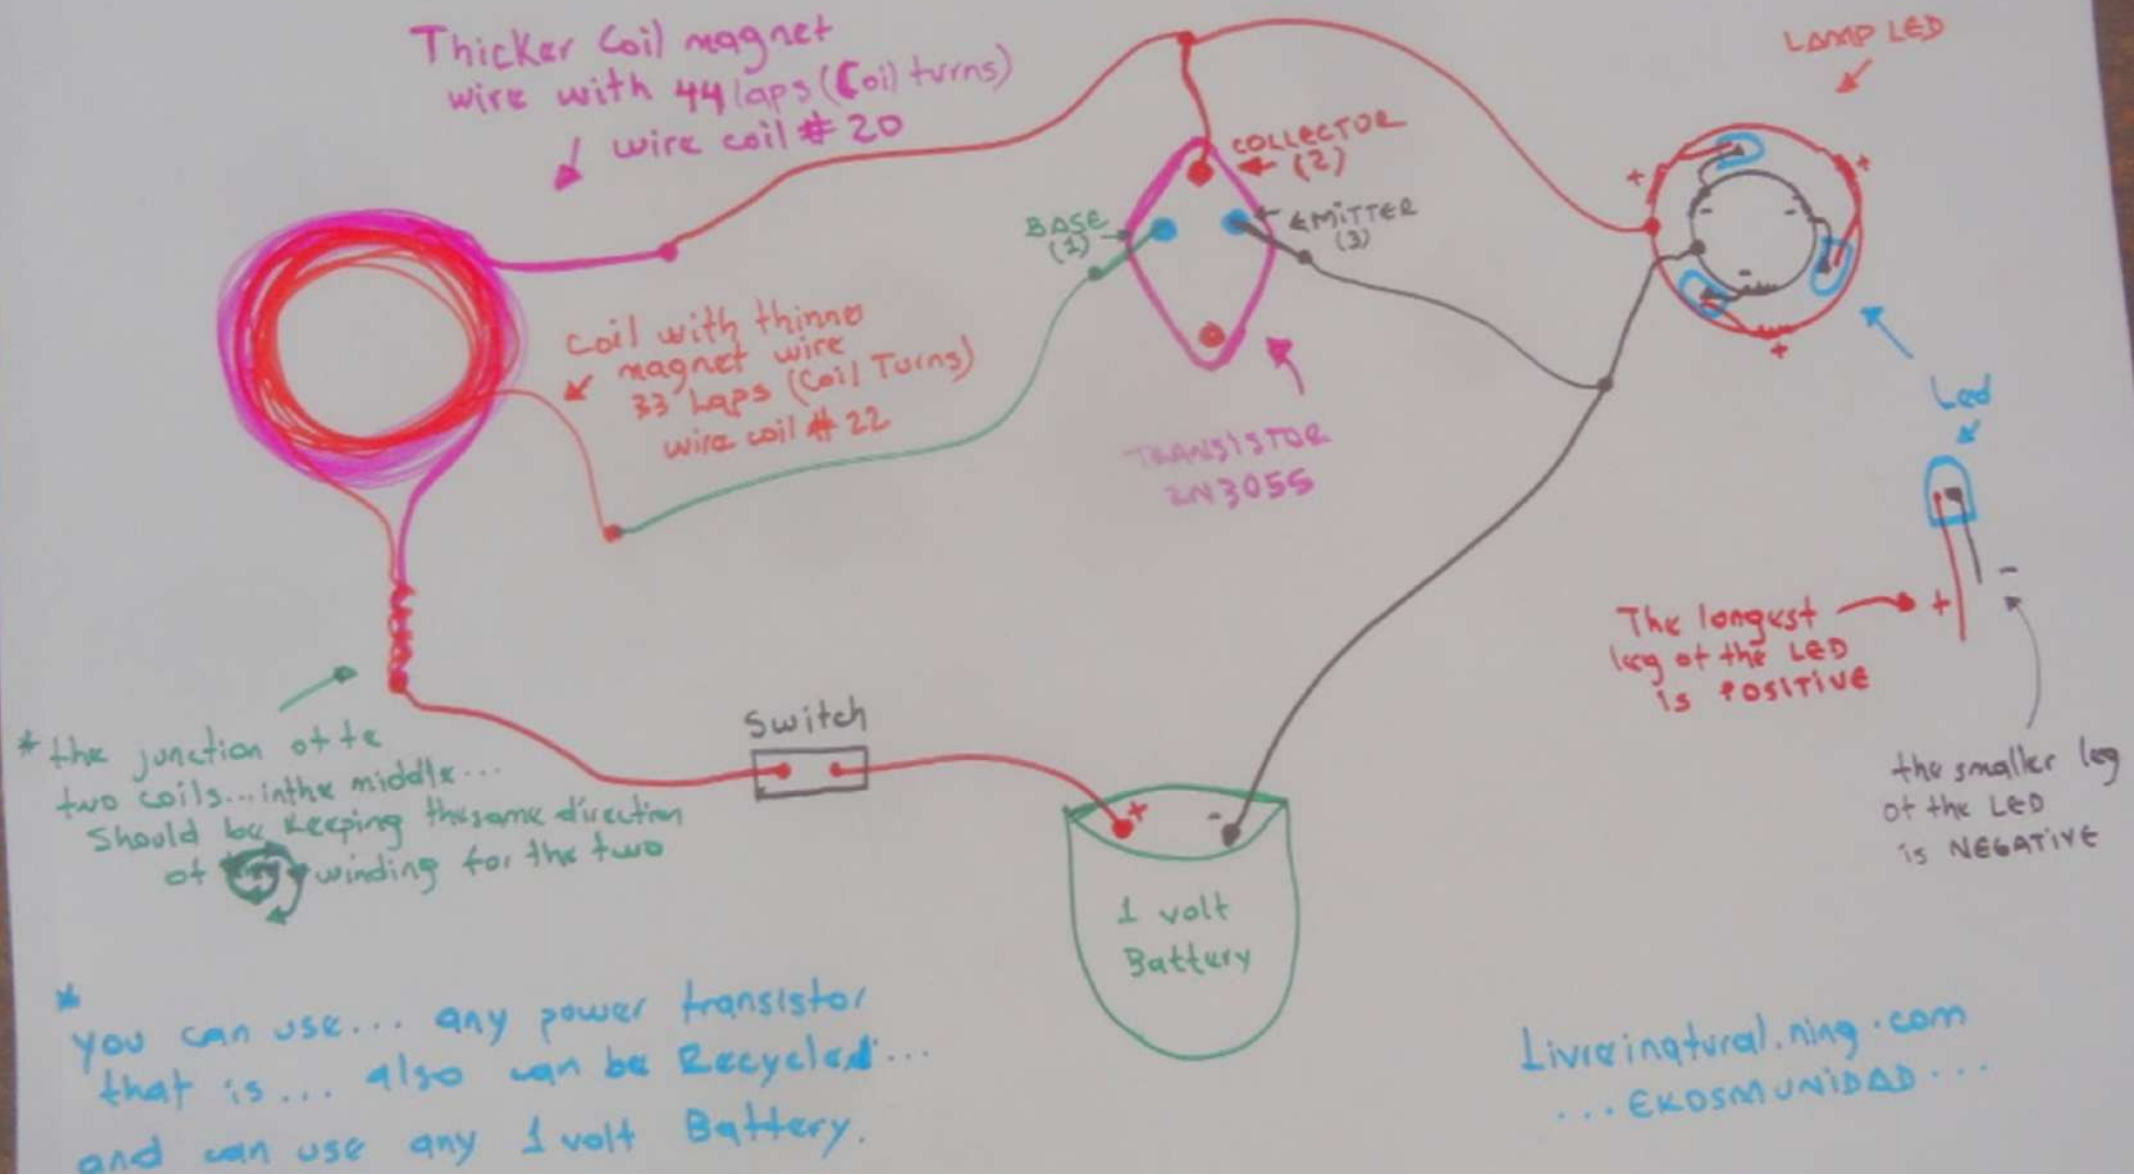 Thicker Coil magnet
wire with 44 laps (Coil turns)
wire coil # 20
LAMP LED
COLLECTOR
(2)
BASE
(1)
EMITTER
(3)
coil with thinno
magnet wire
33 Laps (Coil Turns)
wire coil # 22
TRANSISTOR
2N3055
Led
+
+
+
-
-
-
The longest
leg of the LED
is POSITIVE
+
-
the smaller leg
of the LED
is NEGATIVE
Switch
* the junction of te
two coils... in the middle...
Should be keeping the same direction
of winding for the two
+
-
1 volt
Battery
*
you can use... any power transistor
that is... also can be Recycled...
and can use any 1 volt Battery.
Livreinatural.ning.com
... EKOSMUNIDAD...